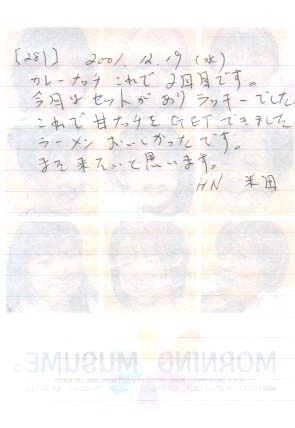 [281] 2001.12.19 (水)
カレーナッチ これで 2回目です。
今回は セットが あり ラッキーでした。
これで 甘ナッチを GET できました。
ラーメン おいしかったです。
また 来たいと 思います。
HN 米田
MORNING MUSUME。